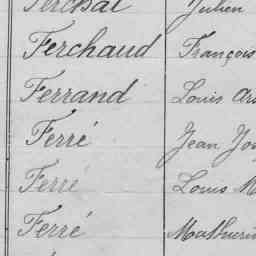 Ferchaud François
Ferrand Louis
Ferré Jean
Ferré Louis
Ferré Mathurin